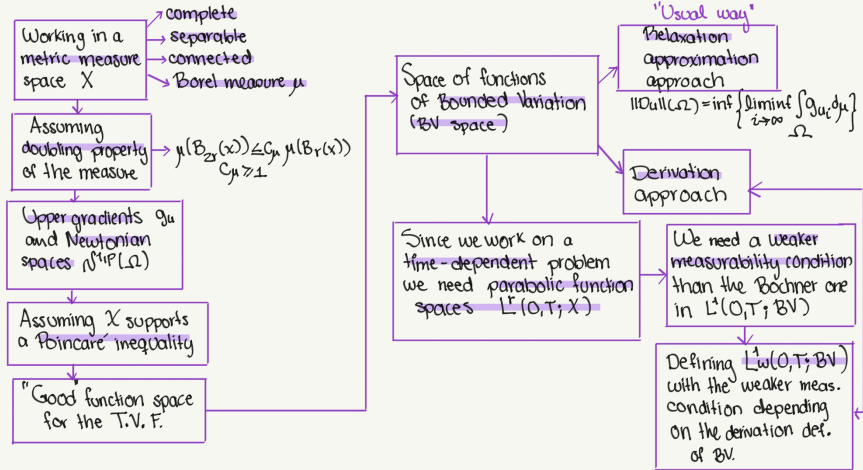 Working in a
metric measure
space X
complete
separable
connected
Borel measure μ
Assuming
doubling property
of the measure
μ(B₂ᵣ(x)) ≤ Cμ μ(Bᵣ(x))
Cμ ≥ 1
Upper gradients gᵤ
and Newtonian
spaces N¹'ᵖ(Ω)
Assuming X supports
a Poincaré inequality
"Good" function space
for the T.V.F.
Space of functions
of Bounded Variation
(BV space)
"Usual way"
Relaxation
approximation
approach
||Du||(Ω) = inf { liminf ∫ gᵤᵢ dμ }
i→∞ Ω
Derivation
approach
Since we work on a
time-dependent problem
we need parabolic function
spaces Lʳ(0,T; X)
We need a weaker
measurability condition
than the Bochner one
in L¹(0,T; BV)
Defining L¹w(0,T; BV)
with the weaker meas.
condition depending
on the derivation def.
of BV.